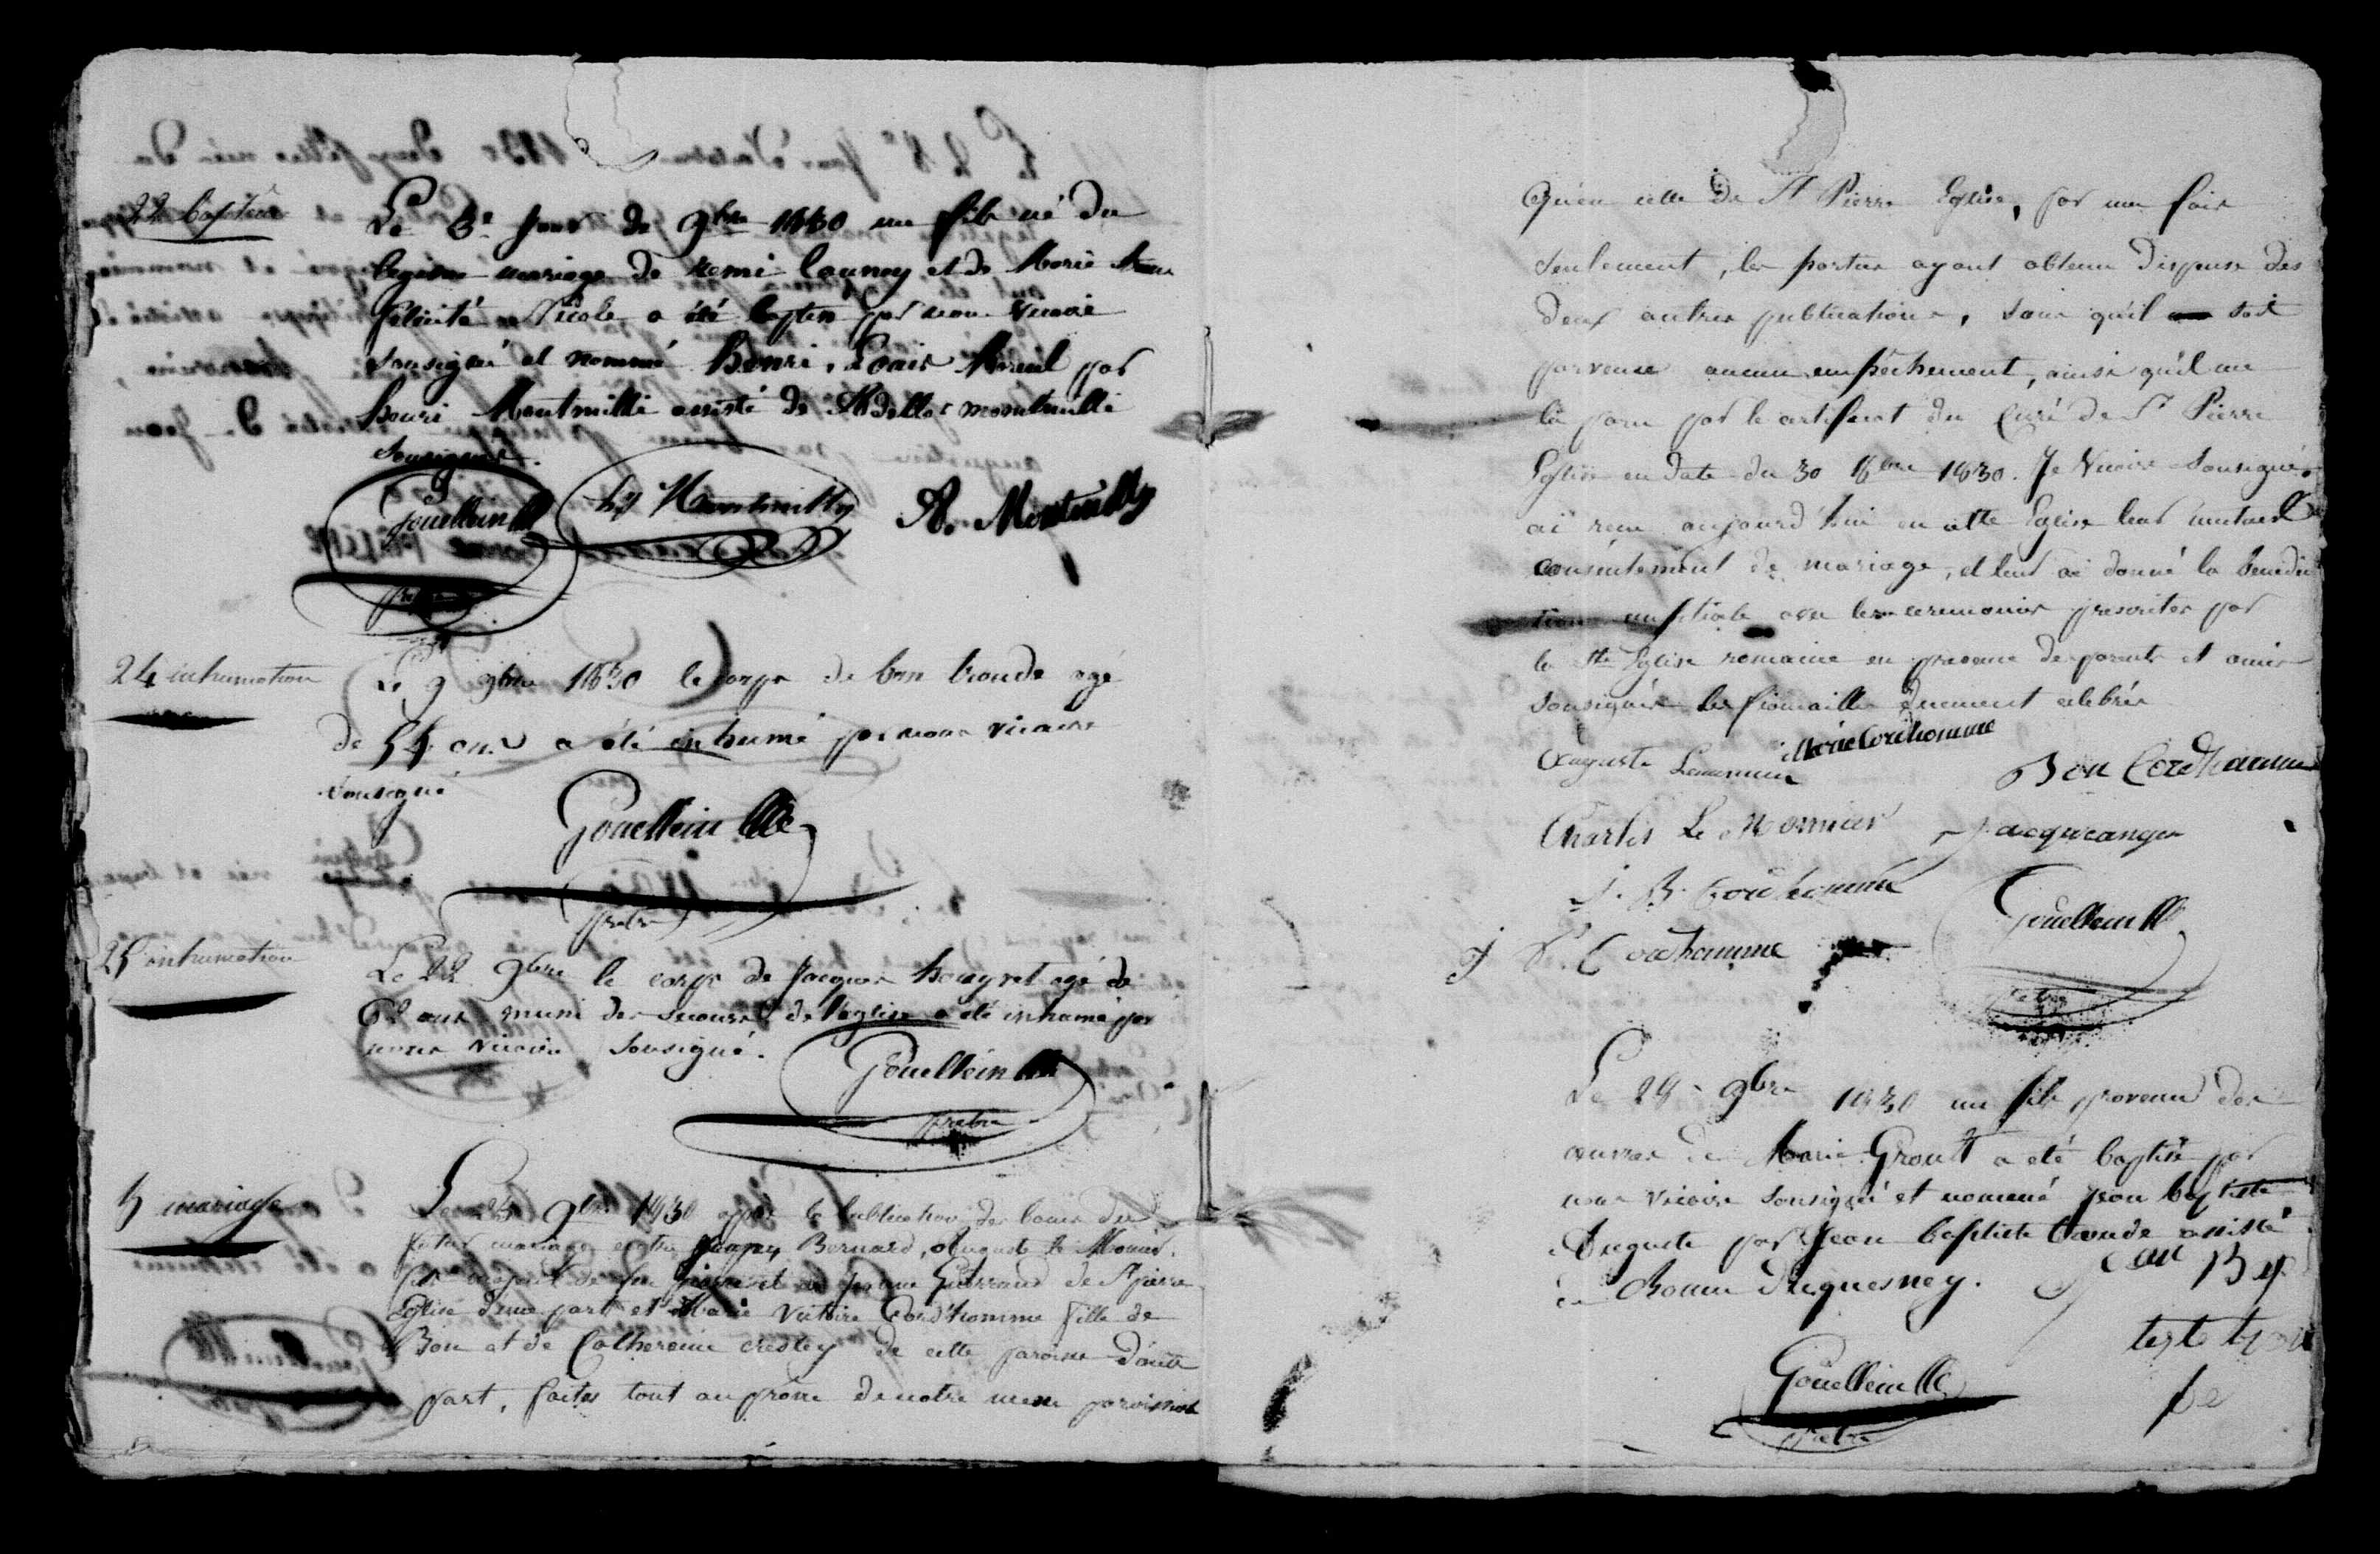 22 baptême
Le 3e jour de 9bre 1830 un fils né du
legitime mariage de remi launay et de Marie
felicité Nicole a été baptisé par nous vicaire
sousigné et nommé henri, Louis par
henri Montmilli assisté de Adelle montmilli
Sousignés.
Gouelleinlle hy Montmilly A. Montmilly
prêtre
24 inhumation
Le 9 9bre 1830 le corps de bon troude agé
de 54 ans a été inhumé par nous vicaire
sousigné
Gouelleinlle
prêtre
25 inhumation
Le 22 9bre le corps de Jacques houyvet agé de
62 ans muni des secours de l'eglise a été inhumé par
nous vicaire Sousigné.
Gouelleinlle
prêtre
5 mariage
Le 25 9bre 1830 après la publication des bans du
futur mariage entre Bernard, Auguste le Monier
fils de feu pierre et de jeanne de St pierre
Eglise d'une part et Marie Victoire Cord'homme fille de
Bon et de Catherine crestey de cette paroisse d'autre
part, faites tant au prone de notre messe paroissiale
Qu'en celle de St Pierre Eglise, par une fois
seulement, les parties ayant obtenu dispense des
deux autres publications, sans qu'il soit
parvenu aucun empêchement, ainsi qu'il me
l'a paru par le certificat du Curé de St Pierre
Eglise en date du 30 8bre 1830. Je Vicaire Sousigné
ai reçu aujourd'hui en cette Eglise leur mutuel
consentement de mariage, et leur ai donné la benedic
tion nuptiale avec les ceremonies prescrites par
la Ste Eglise romaine en presence des parents et amis
sousignés les fiancailles duement celebrées
Marie Cordhomme
Auguste Lemonnier Bon Cordhomme
Charles Le Monnier Jacqueranger
J. B. Cordhomme
J P. Cordhomme Gouelleinlle
prêtre
Le 28 9bre 1830 un fils provenu des
œuvres de Marie Groult a été baptisé par
nous vicaire sousigné et nommé jean baptiste
Auguste par Jean baptiste troude assisté
de Bonne Duquesney. Jean Bap
teste trou
de
Gouelleinlle
prêtre